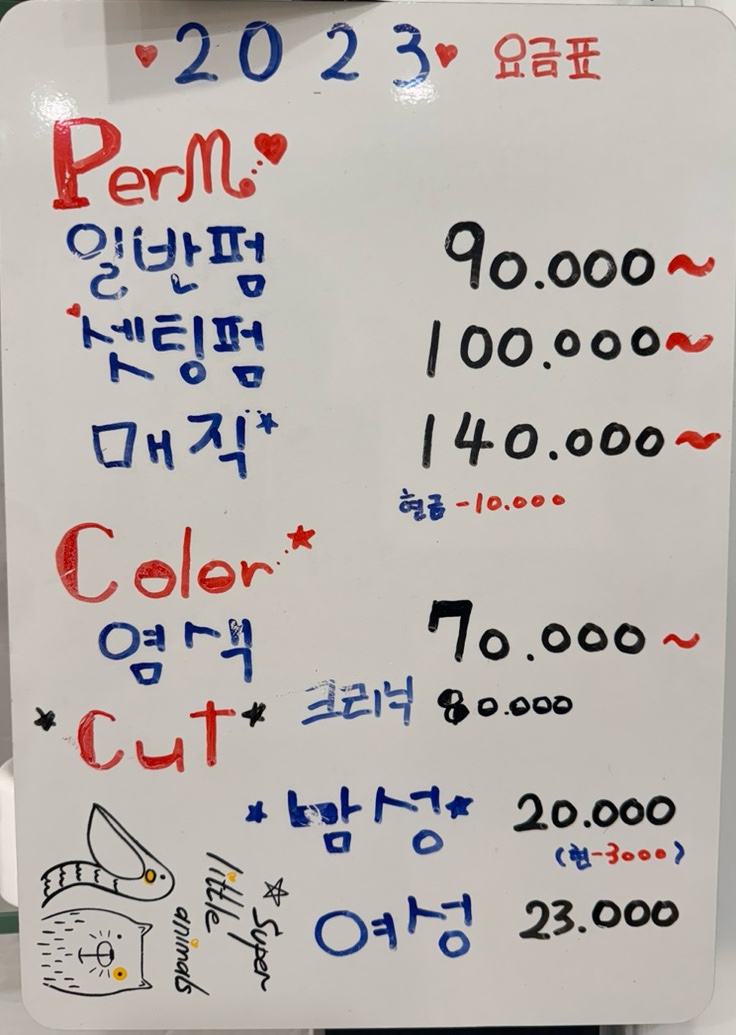 2023 요금표
PerM
일반펌 90.000~
셋팅펌 100.000~
매직 140.000~
현금 -10.000
Color
염색 70.000~
크리닉 80.000
Cut
남성 20.000
(현-3000)
여성 23.000
Super
little
animals